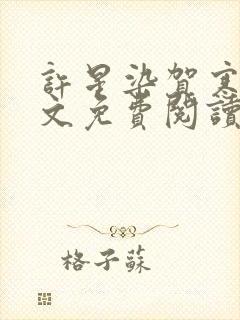 許星染賀寒
文免費閱讀
格子蘇